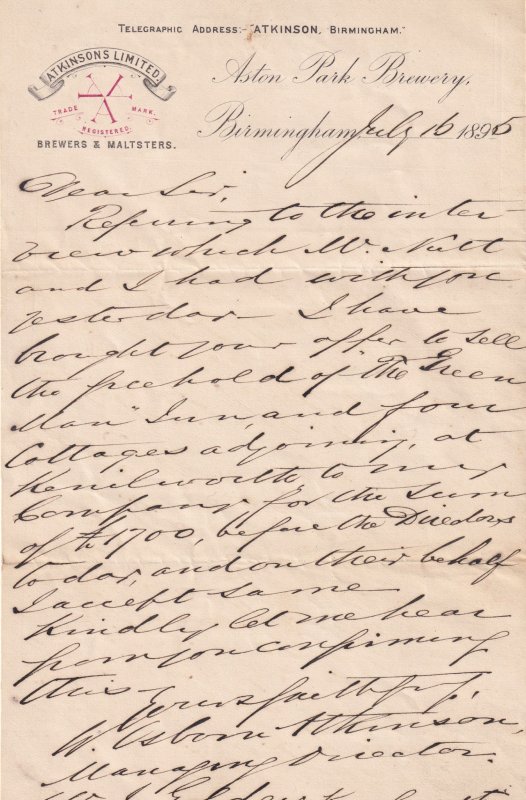 TELEGRAPHIC ADDRESS:- "ATKINSON, BIRMINGHAM."
ATKINSONS LIMITED.
TRADE MARK.
REGISTERED.
BREWERS & MALTSTERS.
Aston Park Brewery,
Birmingham, July 16 1895
Dear Sir,
Referring to the inter-
view which Mr. Nutt
and I had with you
yesterday - I have
brought your offer to sell
the freehold of "The Green
Man" Inn, and four
Cottages adjoining, at
Kenilworth, to my
Company, for the Sum
of £1700, before the Directors
to day, and on their behalf
I accept same
Kindly let me hear
from you confirming
this -
Yours faithfully,
W Osborn Atkinson,
Managing Director.